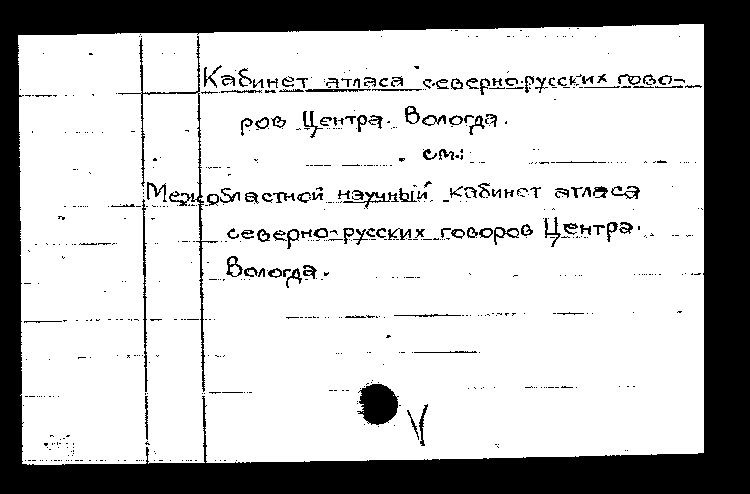 Кабинет атласа северно-русских гово-
ров Центра. Вологда.
см.:
Межобластной научный кабинет атласа
северно-русских говоров Центра.
Вологда.
V